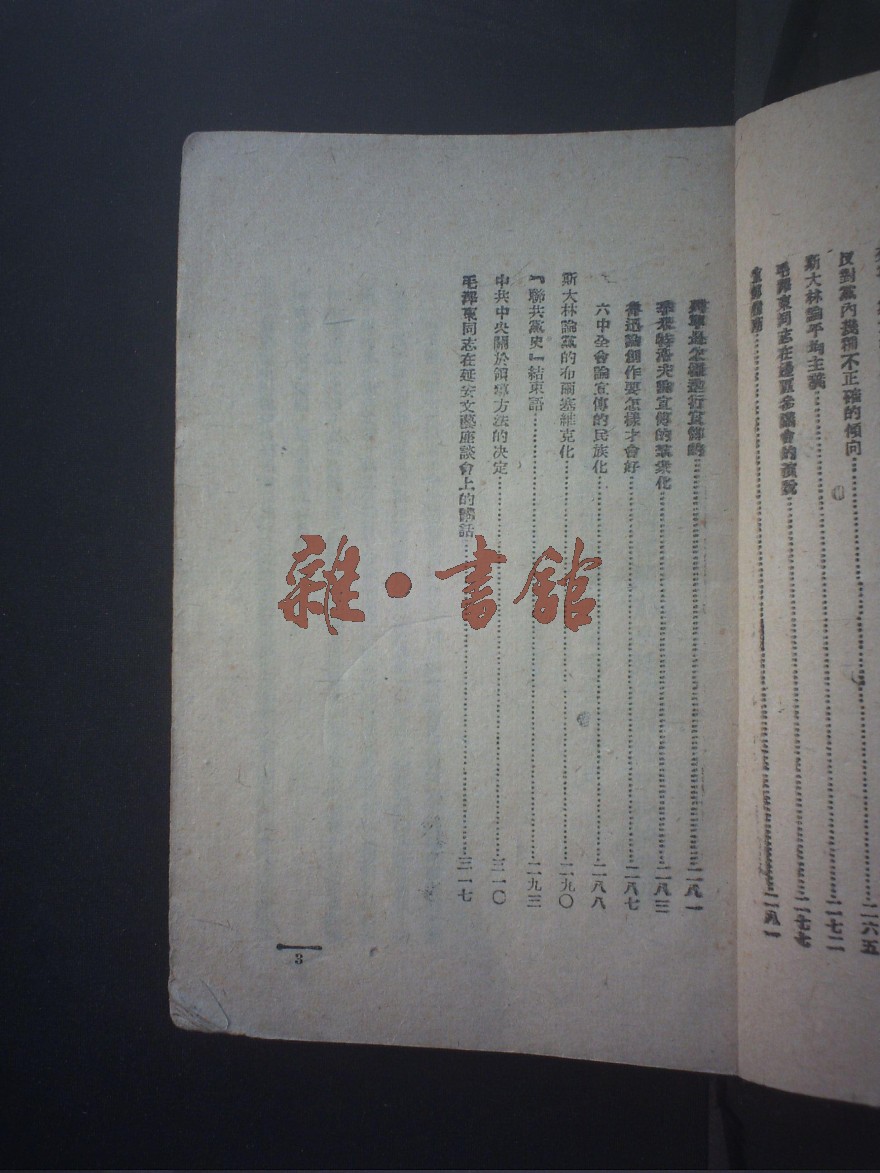 反對黨內幾種不正確的傾向……二六五
斯大林論平均主義……二七二
毛澤東同志在邊區參議會的演說……二七七
宣傳指南……二八一
列寧是怎樣進行宣傳的……二八一
季米特洛夫論宣傳的羣衆化……二八三
魯迅論創作要怎樣才會好……二八七
六中全會論宣傳的民族化……二八八
斯大林論黨的布爾塞維克化……二九〇
『聯共黨史』結束語……二九三
中共中央關於領導方法的決定……三一〇
毛澤東同志在延安文藝座談會上的講話……三一七
3
雜·書館